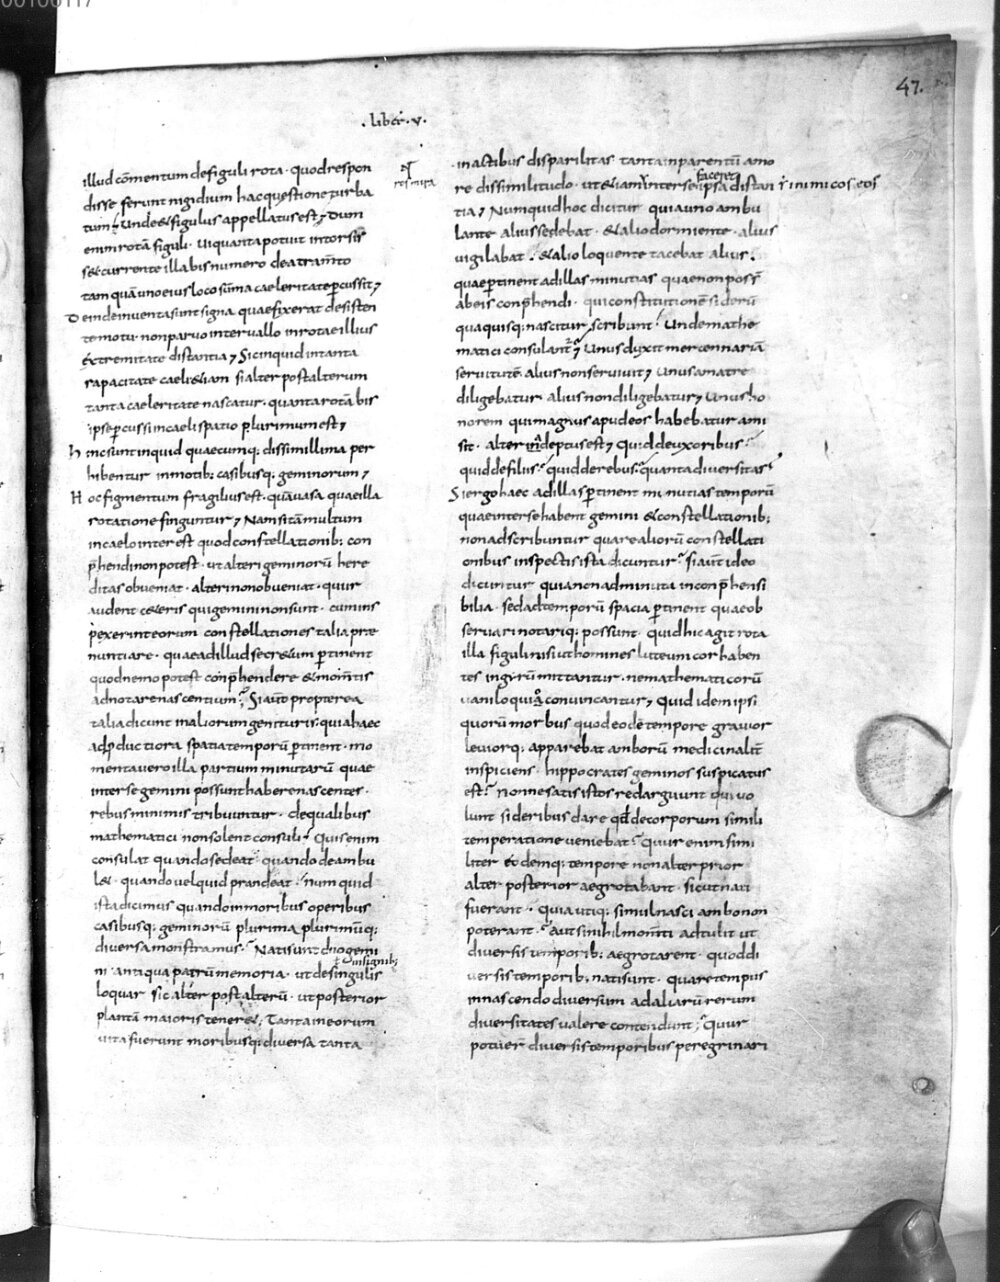 00100117
47.
. liber . v .
illud cōmentum defiguli rota · quodrespon
disse ferunt nigidium hacquestione turba
tum; Unde&figulus appellatusest; Dum
enim rotā figuli · ui quanta potuit intorsis
s& currente illa bis numero de atramto
tam quā uno eius loco sūma caeleritate ꝑcussit;
Deinde inuenta sunt signa quae fixerat desisten
te motu · non paruo interuallo in rotae illius
extremitate distantia; Sic inquid in tanta
rapacitate caeli &iam si alter post alterum
tanta caeleritate nascatur · quanta rotā bis
ipse ꝑcussi in caeli spatio plurimum est;
hinc sunt inquid quaecumq; dissimillima per
hibentur in morib; casibusq; geminorum;
Hoc figmentum fragilius est · quā uasa quae illa
rotatione finguntur; Nam si tā multum
in caelo interest quod constellationib; con
p̄hendi non potest · ut alteri geminorū here
ditas obueniat · alteri non obueniat · quur
audent c&eris qui gemini non sunt · cum ins
pexerint eorum constellationes talia prae
nuntiare · quae ad illud secr&um ꝑtinent
quod nemo potest conp̄hendere & momtis
adnotare nascentium? Si aut̄ propterea
talia dicunt in aliorum genituris · quia haec
ad ꝓductiora spatia temporū ꝑtinent · mo
menta uero illa partium minutarū quae
inter se gemini possunt habere nascentes ·
rebus minimis tribuuntur · de qualibus
mathematici non solent consuli? Quis enim
consulat quando sedeat · quando deambu
l& · quando uel quid prandeat · num quid
ista dicimus quando in moribus operibus
casibusq; geminorū plurima plurimūq;
diuersa monstramus? Nati sunt duo gemi
ni · antiqua patrū memoria · ut de singulis insignib;
loquar sic alter post alterū · ut posterior
plantā maioris tener&; Tanta in eorum
uita fuerunt moribusq; diuersa tanta
in actibus disparilitas tanta in parentū amo
re dissimilitudo · ut &iam inter se ipsa distan inimicos eos faceret
tia; Numquid hoc dicitur quia uno ambu
lante alius sedebat · & alio dormiente · alius
uigilabat · & alio loquente tacebat alius ·
quae ꝑtinent ad illas minutias quae non poss̄
ab eis conp̄hendi · qui constitutionē siderū
qua quisq; nascitur scribunt · Unde mathe
matici consulant̄; Unus duxit mercennariā
seruitutē alius non seruiuit; Unus a matre
diligebatur alius non diligebatur; Unus ho
norem qui magnus apud eos habebatur ami
sit · alter indeptus est; Quid de uxoribus?
quid de filiis? quid de rebus? quanta diuersitas?
Si ergo haec ad illas ꝑtinent minutias temporū
quae inter se habent gemini & constellationib;
non adscribuntur quare aliorū constellati
onibus inspectis ista dicuntur? si aut̄ ideo
dicuntur quia non ad minuta inconp̄hensi
bilia · sed ad temporū spacia ꝑtinent quae ob
seruari notariq; possunt · quid hic agit rota
illa figuli nisi ut homines luteum cor haben
tes in gyrū mittantur · ne mathematicorū
uaniloquia conuincantur; Quid idem ipsi
quorū morbus quod eodē tempore grauior
leuiorq; apparebat amborū medicinalit̄
inspiciens · hippocrates geminos suspicatus
est? Nonne satis istos redarguunt qui uo
lunt sideribus dare qd̄ de corporum simili
temperatione ueniebat? Quur enim simi
liter eodemq; tempore non alter prior
alter posterior aegrotabant · sicut nati
fuerant · Quia utiq; simul nasci ambo non
poterant? Aut si nihil momti adtulit ut
diuersis temporib; aegrotarent · quod di
uersis temporib; nati sunt · quare tempus
in nascendo diuersum ad aliarū rerum
diuersitates ualere contendunt; Quur
potuer̄ diuersis temporibus peregrinari